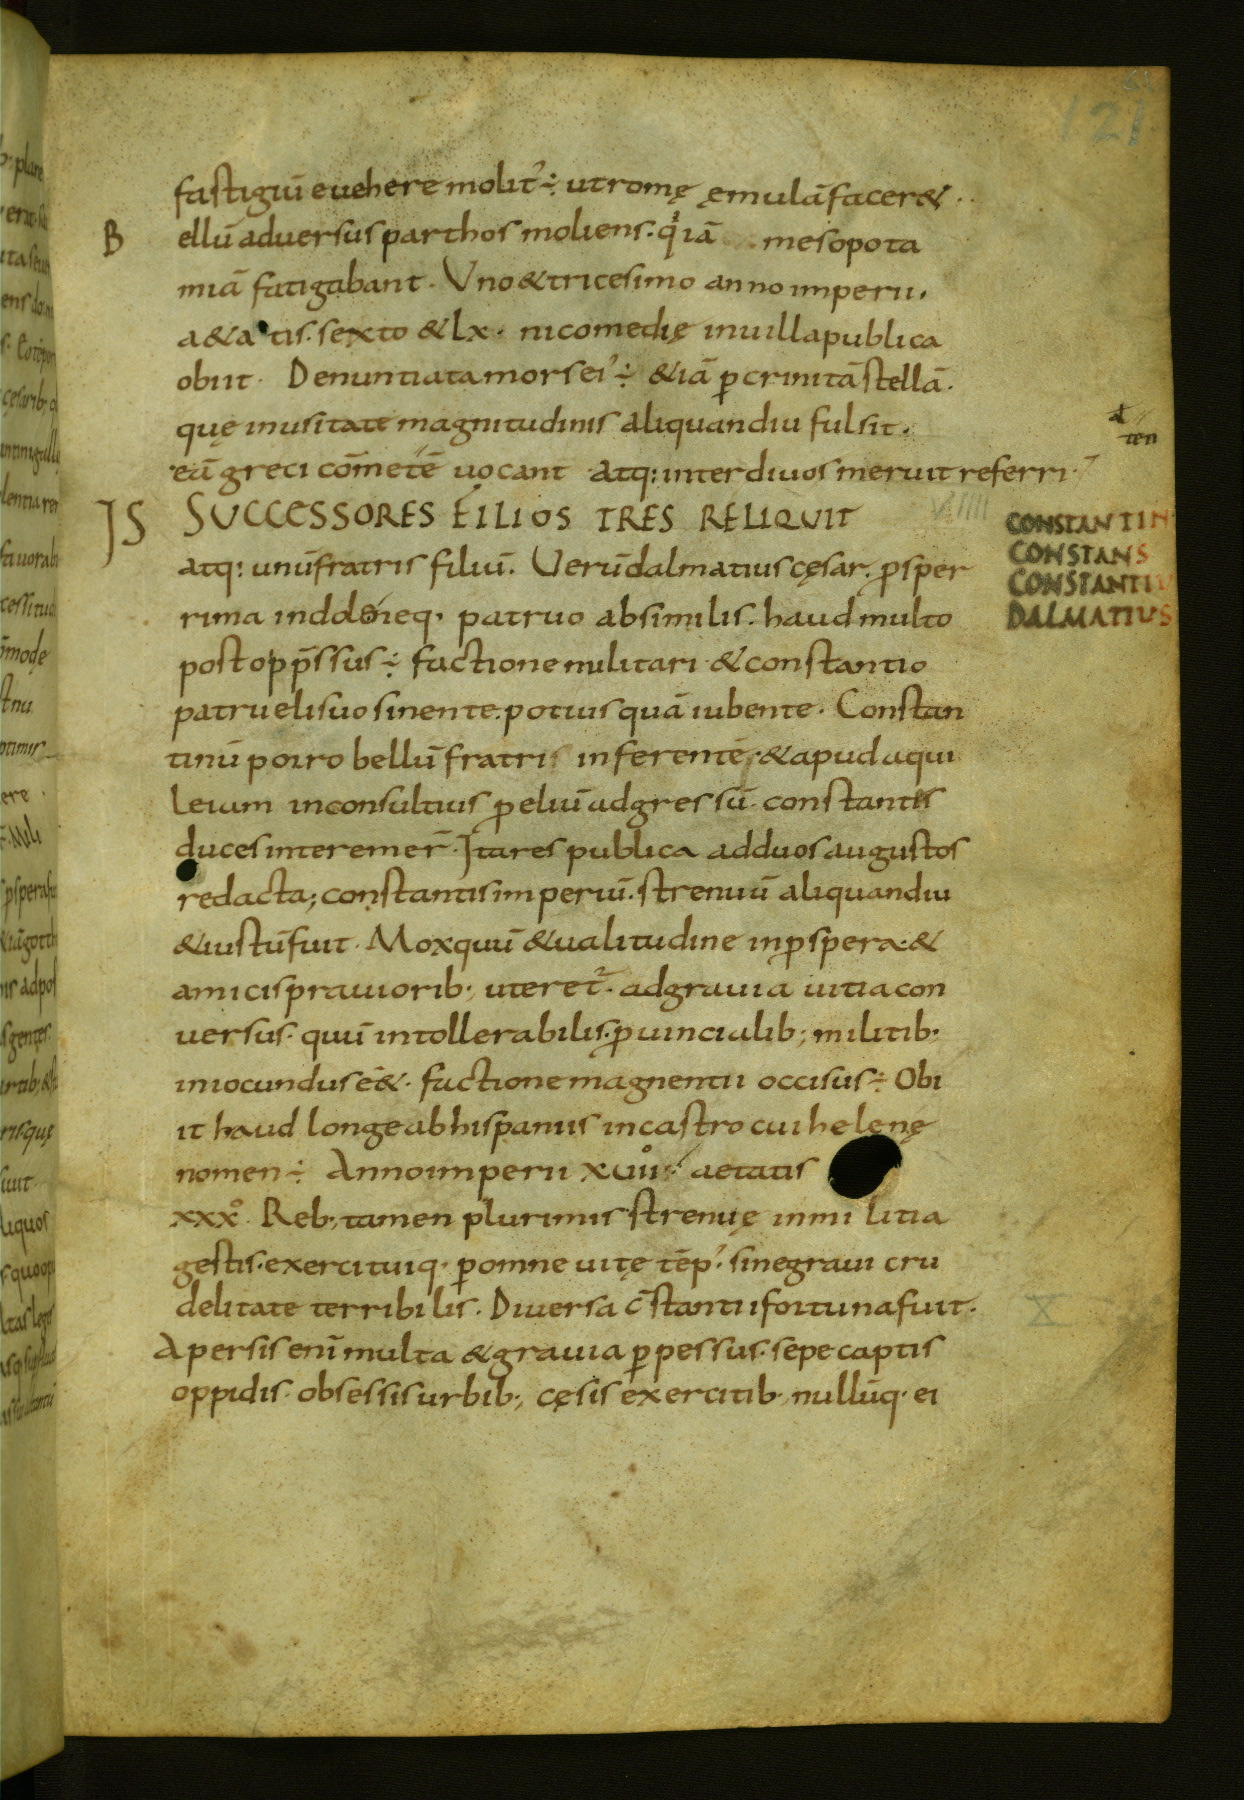 121
fastigiũ evehere molit᾽ ÷ ut romę ęmulã facer&
B ellũ adversus parthos moliens. q́ iã mesopota
miã fatigabant. Uno & tricesimo anno imperii.
a&atis. sexto & lx. nicomedię in villa publica
obiit. Denuntiata mors ei᾽ ÷ &iã p̱ crinitã stellã.
quę inusitate magnitudinis aliquandiu fulsit.
eã greci cõmetẽ vocant atq: inter divos meruit referri.
IS SUCCESSORES FILIOS TRES RELIQUIT
CONSTANTIN
CONSTANS
CONSTANTIU
DALMATIUS
atq: unũ fratris filiũ. Verũ dalmatius cęsar. ꝓsper
rima indole eq. patruo absimilis. haud multo
post opp̃ssus ÷ factione militari & constantio
patrueli suo sinente. potius quã iubente. Constan
tinũ porro bellũ fratri inferentẽ. & apud aqui
leiam inconsultius ꝓeliũ adgressũ. constantis
duces interemer̃. Ita res publica ad duos augustos
redacta; constantis imperiũ. strenuũ aliquandiu
& iustũ fuit. Mox quũ & valitudine inꝓspera. &
amicis praviorib; uteret᾽. ad gravia vitia con
versus. quũ intollerabilis. ꝓvincialib; militib;
iniocundus eẽ&. factione magnentii occisus ÷ Obi
it haud longe ab hispaniis in castro cui helenę
nomen ÷ Anno imperii xviiº. aetatis
xxxº. Reb; tamen plurimis strenuę in militia
gestis. exercituiq. ꝑ omne vitę tẽp᾽. sine gravi cru
delitate terribilis. Diversa c̃stantii fortuna fuit.
X
A persis enĩ multa & gravia ꝑpessus. sepe captis
oppidis. obsessis urbib; cęsis exercitib. nullũq. ei